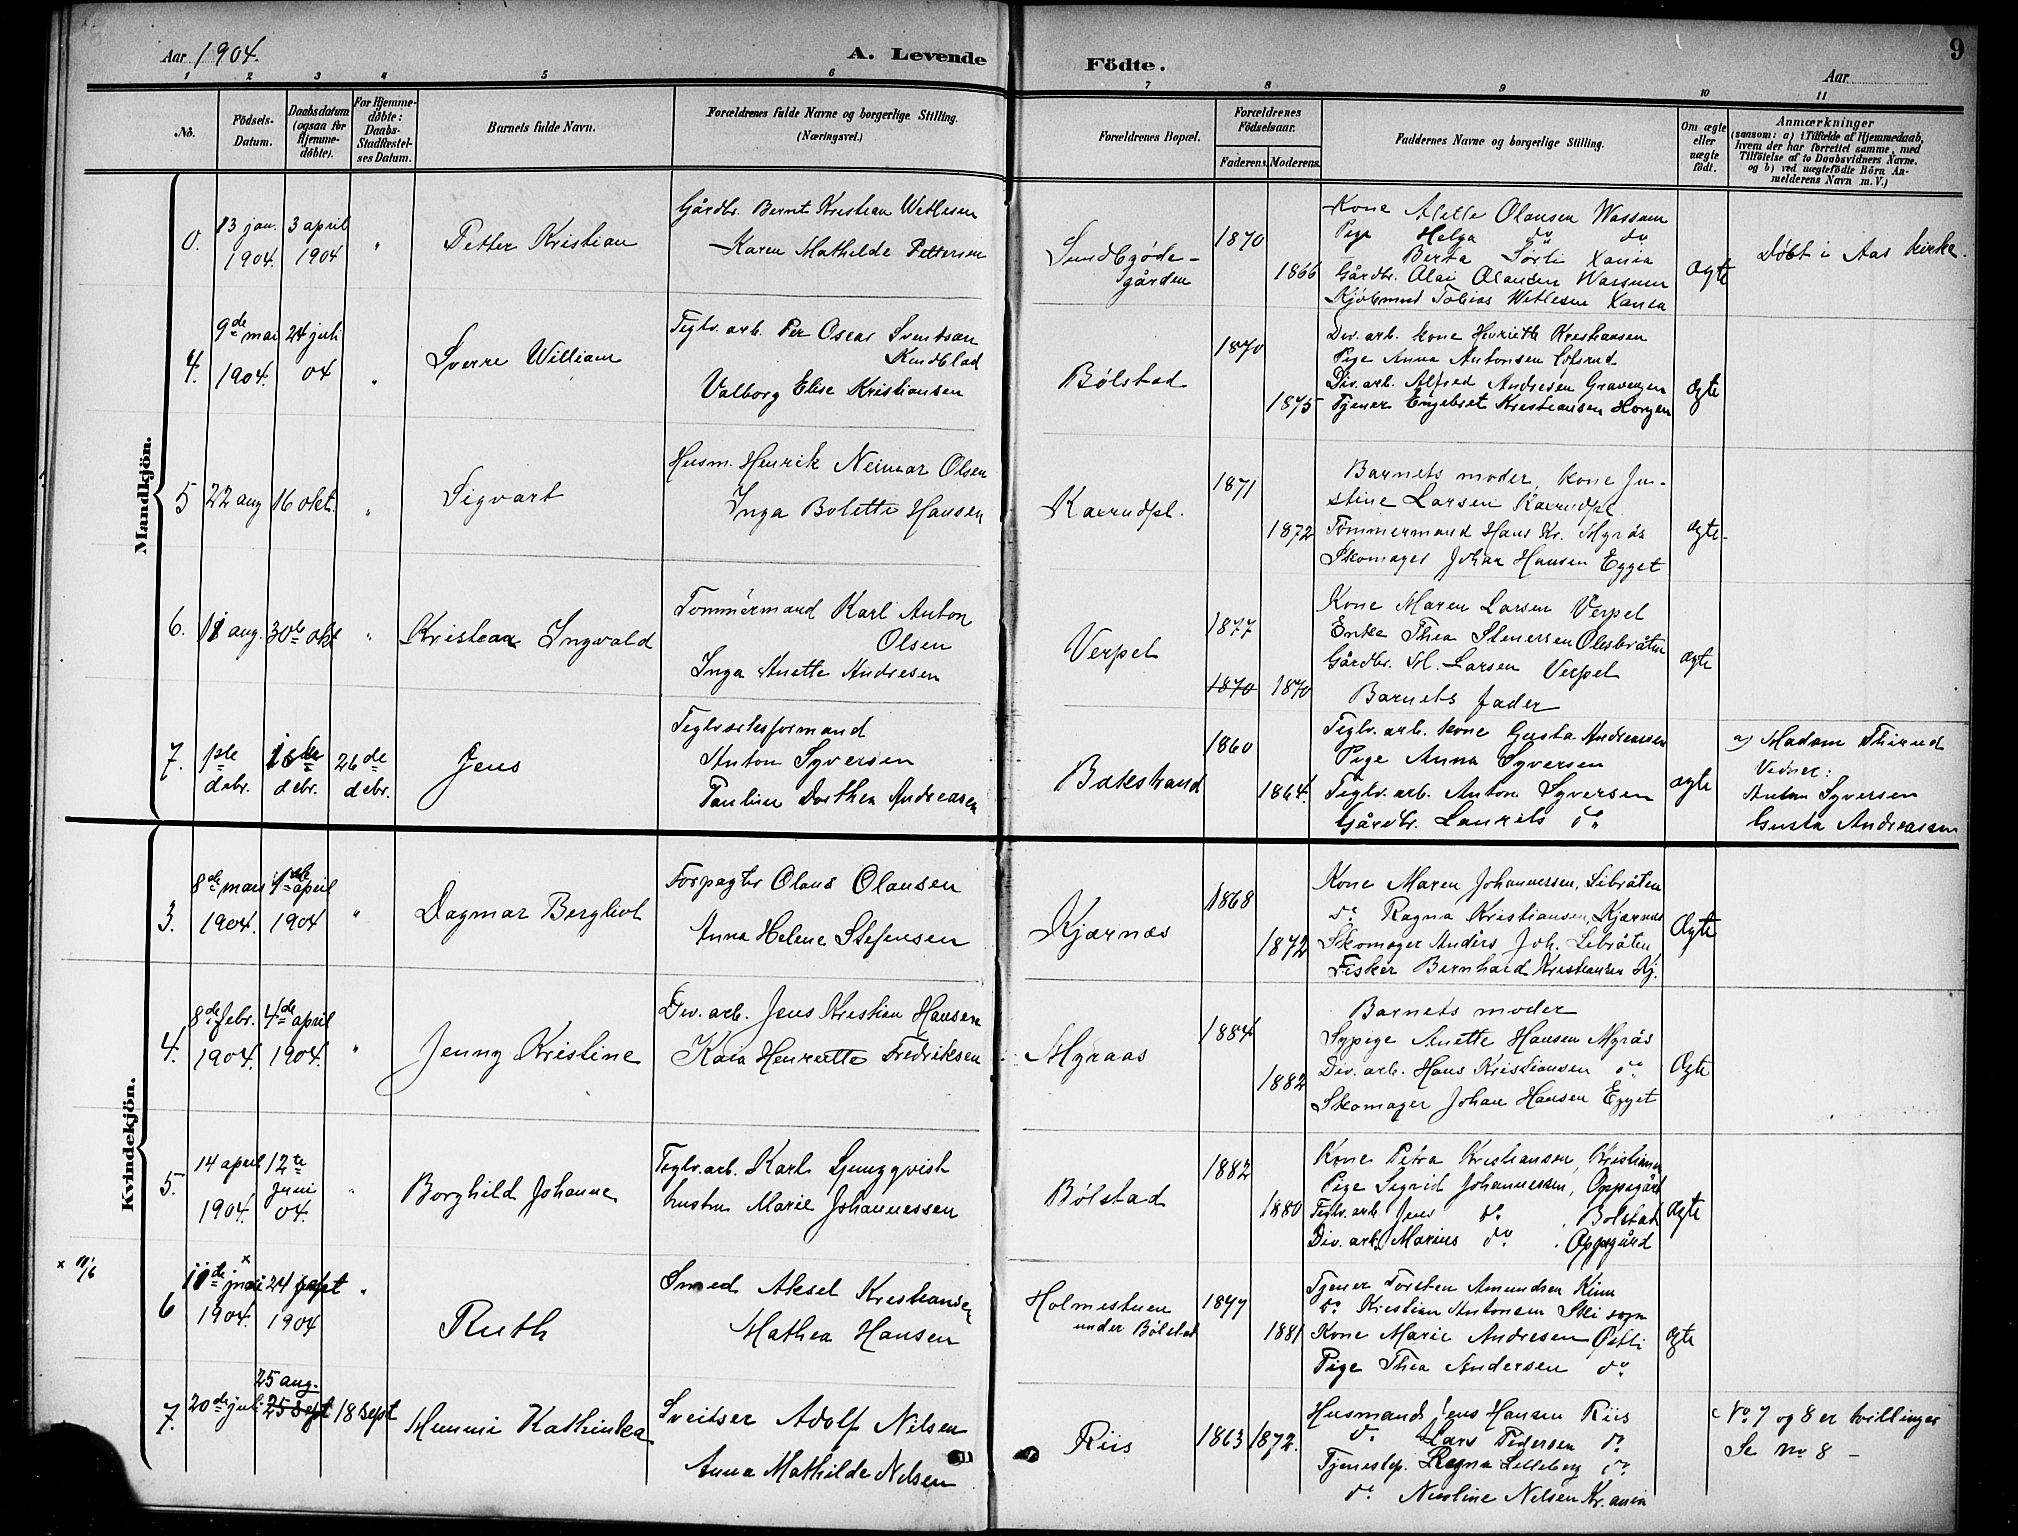 Aar 1904.
A. Levende
Födte.
Aar
9
1 2 3 4 5 6 7 8 9 10 11
No.
Födsels-
Datum.
Daabsdatum
(ogsaa for
Hjemme-
døbte).
For Hjemme-
døbte:
Daabs-
Stadfæstel-
ses Datum.
Barnets fulde Navn.
Forældrenes fulde Navne og borgerlige Stilling.
(Næringsvei.)
Forældrenes Bopæl.
Forældrenes
Födselsaar.
Faderens. Moderens.
Faddernes Navne og borgerlige Stilling.
Om ægte
eller
uægte
födt.
Anmærkninger
(saasom: a) i Tilfælde af Hjemmedaab,
hvem der har forrettet samme, med
Tilføielse af to Daabsvidners Navne.
og b) ved uægtefödte Börn An-
melderens Navn m. V.)
Mandkjön.
0.
13 jan.
1904.
3 april
1904
"
Petter Kristian
Gårdbr. Bernt Kristian Wetlesen
Karen Mathilde Pettersen
gården
1870
1866
Kone Olausen Wassum
Pige Helga do do
Berta Sørli Xania
Gårdbr. Olai Olausen Wassum
Kjøbmand Tobias Wetlesen Xania
ægte
Døbt i Aas kirke.
4.
9de mai
1904.
24 juli
04
"
Sverre William
Teglv. arb. Per Oscar Svendsen
Valborg Elise Kristiansen
Bølstad
1870
1875
Div. arb. kone Henriette Kristiansen
Pige Anna Antonsen
Div. arb. Alfred Andresen
Tjener Engebret Kristiansen Horgen
ægte
5
22 aug
16 okt.
"
Sigvart
Husm. Henrik Neimar Olsen
Inga Bolette Hansen
Kaerudpl.
1871
1872
Barnets moder, kone Ju-
stine Larsen Kaerudpl.
Tømmermand Hans Kr. Myrås
Skomager Johan Hansen Egget
ægte
6.
11 aug.
30te okt
"
Kristian Ingvald
Tømmermand Karl Anton
Olsen
Inga Anette Andresen
Verpet
1877
1870 1870
Kone Maren Larsen Verpet
Enke Thea Stenersen Olesbråten
Gårdbr. M. Larsen Verpet
Barnets fader
ægte
7.
1ste
debr.
18de
debr.
26de
debr.
Jens
Teglverksformand
Anton Syversen
Pauline Dorthea Andreasen
Bakstrand
1860
1864.
Teglv. arb. kone Gusta Andreassen
Pige Anna Syversen
Teglv. arb. Anton Syversen
Gårdbr. Laurits do
ægte
a) Madam Thirud
Vidner:
Anton Syversen
Gusta Andreassen
Kvindekjön.
3.
8de mars
1904.
4de april
1904
"
Dagmar Bergliot
Forpagter Olaus Olausen
Anna Helene Stefensen
Kjærnæs
1868
1872
Kone Maren Johannessen, Libråten
do Ragna Kristiansen, Kjærnæs
Skomager Anders Joh. Libråten
Fisker Bernhard Kristiansen Kj.
Ægte
4.
8de febr.
1904.
4de april
1904.
"
Jenny Kristine
Div. arb. Jens Kristian Hansen
Kaia Henriette Fredriksen
Myraas
1884
1882
Barnets moder
Sypige Anette Hansen Myrås
Div. arb. Hans Kristiansen do
Skomager Johan Hansen Egget
Ægte
5.
14 april
1904.
12te
juni
04.
"
Borghild Johanne
Teglv. arb. Karl Ljungqvist
hustru Marie Johannessen
Bølstad
1882
1880
Kone Petra Kristiansen, Kristiania
Pige Sigrid Johannessen, Oppegård
Teglv. arb. Jens do Bølstad
Div. arb. Marius do Oppegård
ægte
x 11/6
6
11de x
1904.
24 sept
1904
"
Ruth
Smed Aksel Kristiansen
Mathea Hansen
Holmestuen
under Bølstad
1877
1881
Tjener Torsten Amundsen Kinn
do Kristian Antonsen Ski sogn
Kone Marie Andresen
Pige Thea Andersen do
ægte
7.
20de juli
25 aug.
25 sept
18 sept
Memmi Kathinka
Sveitser Adolf Nilsen
Anna Mathilde Nilsen
Riis
1863
1872.
Husmand Jens Hansen Riis
do Lars Pedersen do
Tjenestep. Ragna Lilleberg do
do Nicoline Nilsen Kr.ania
No 7 og 8 er tvillinger
Se no 8 –